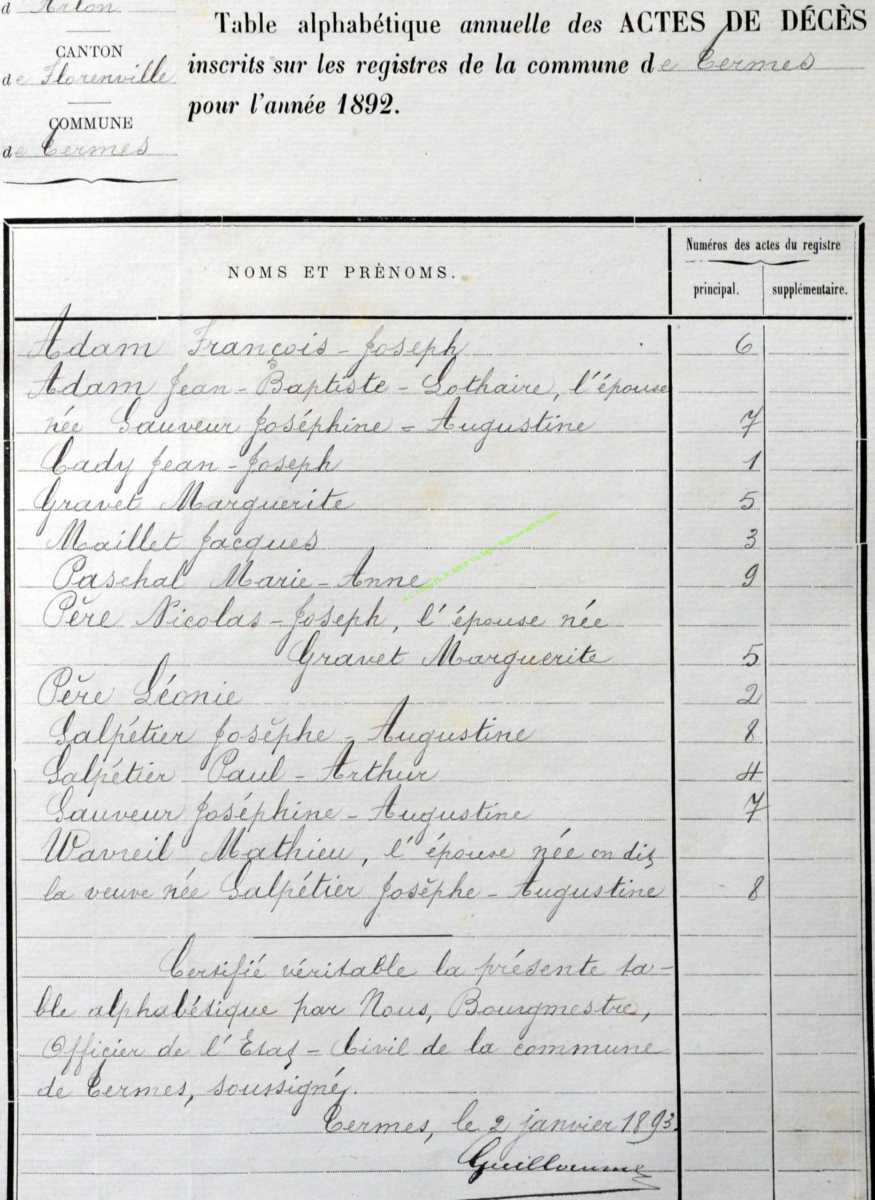 d'Arlon
CANTON
de Florenville
COMMUNE
de Termes
Table alphabétique annuelle des ACTES DE DÉCÈS
inscrits sur les registres de la commune de Termes
pour l'année 1892.
NOMS ET PRÉNOMS.
Numéros des actes du registre
principal. supplémentaire.
Adam François-Joseph 6
Adam Jean-Baptiste-Lothaire, l'épouse
née Sauveur Joséphine-Augustine 7
Cady Jean-Joseph 1
Gravet Marguerite 5
Maillet Jacques 3
Paschal Marie-Anne 9
Père Nicolas-Joseph, l'épouse née
Gravet Marguerite 5
Père Léonie 2
Salpétier Josèphe-Augustine 8
Salpétier Paul-Arthur 4
Sauveur Joséphine-Augustine 7
Wavreil Mathieu, l'épouse née on dit
la veuve née Salpétier Josèphe-Augustine 8
Certifié véritable la présente ta-
ble alphabétique par Nous, Bourgmestre,
Officier de l'Etat-Civil de la commune
de Termes, soussigné.
Termes, le 2 janvier 1893.
Guillaume